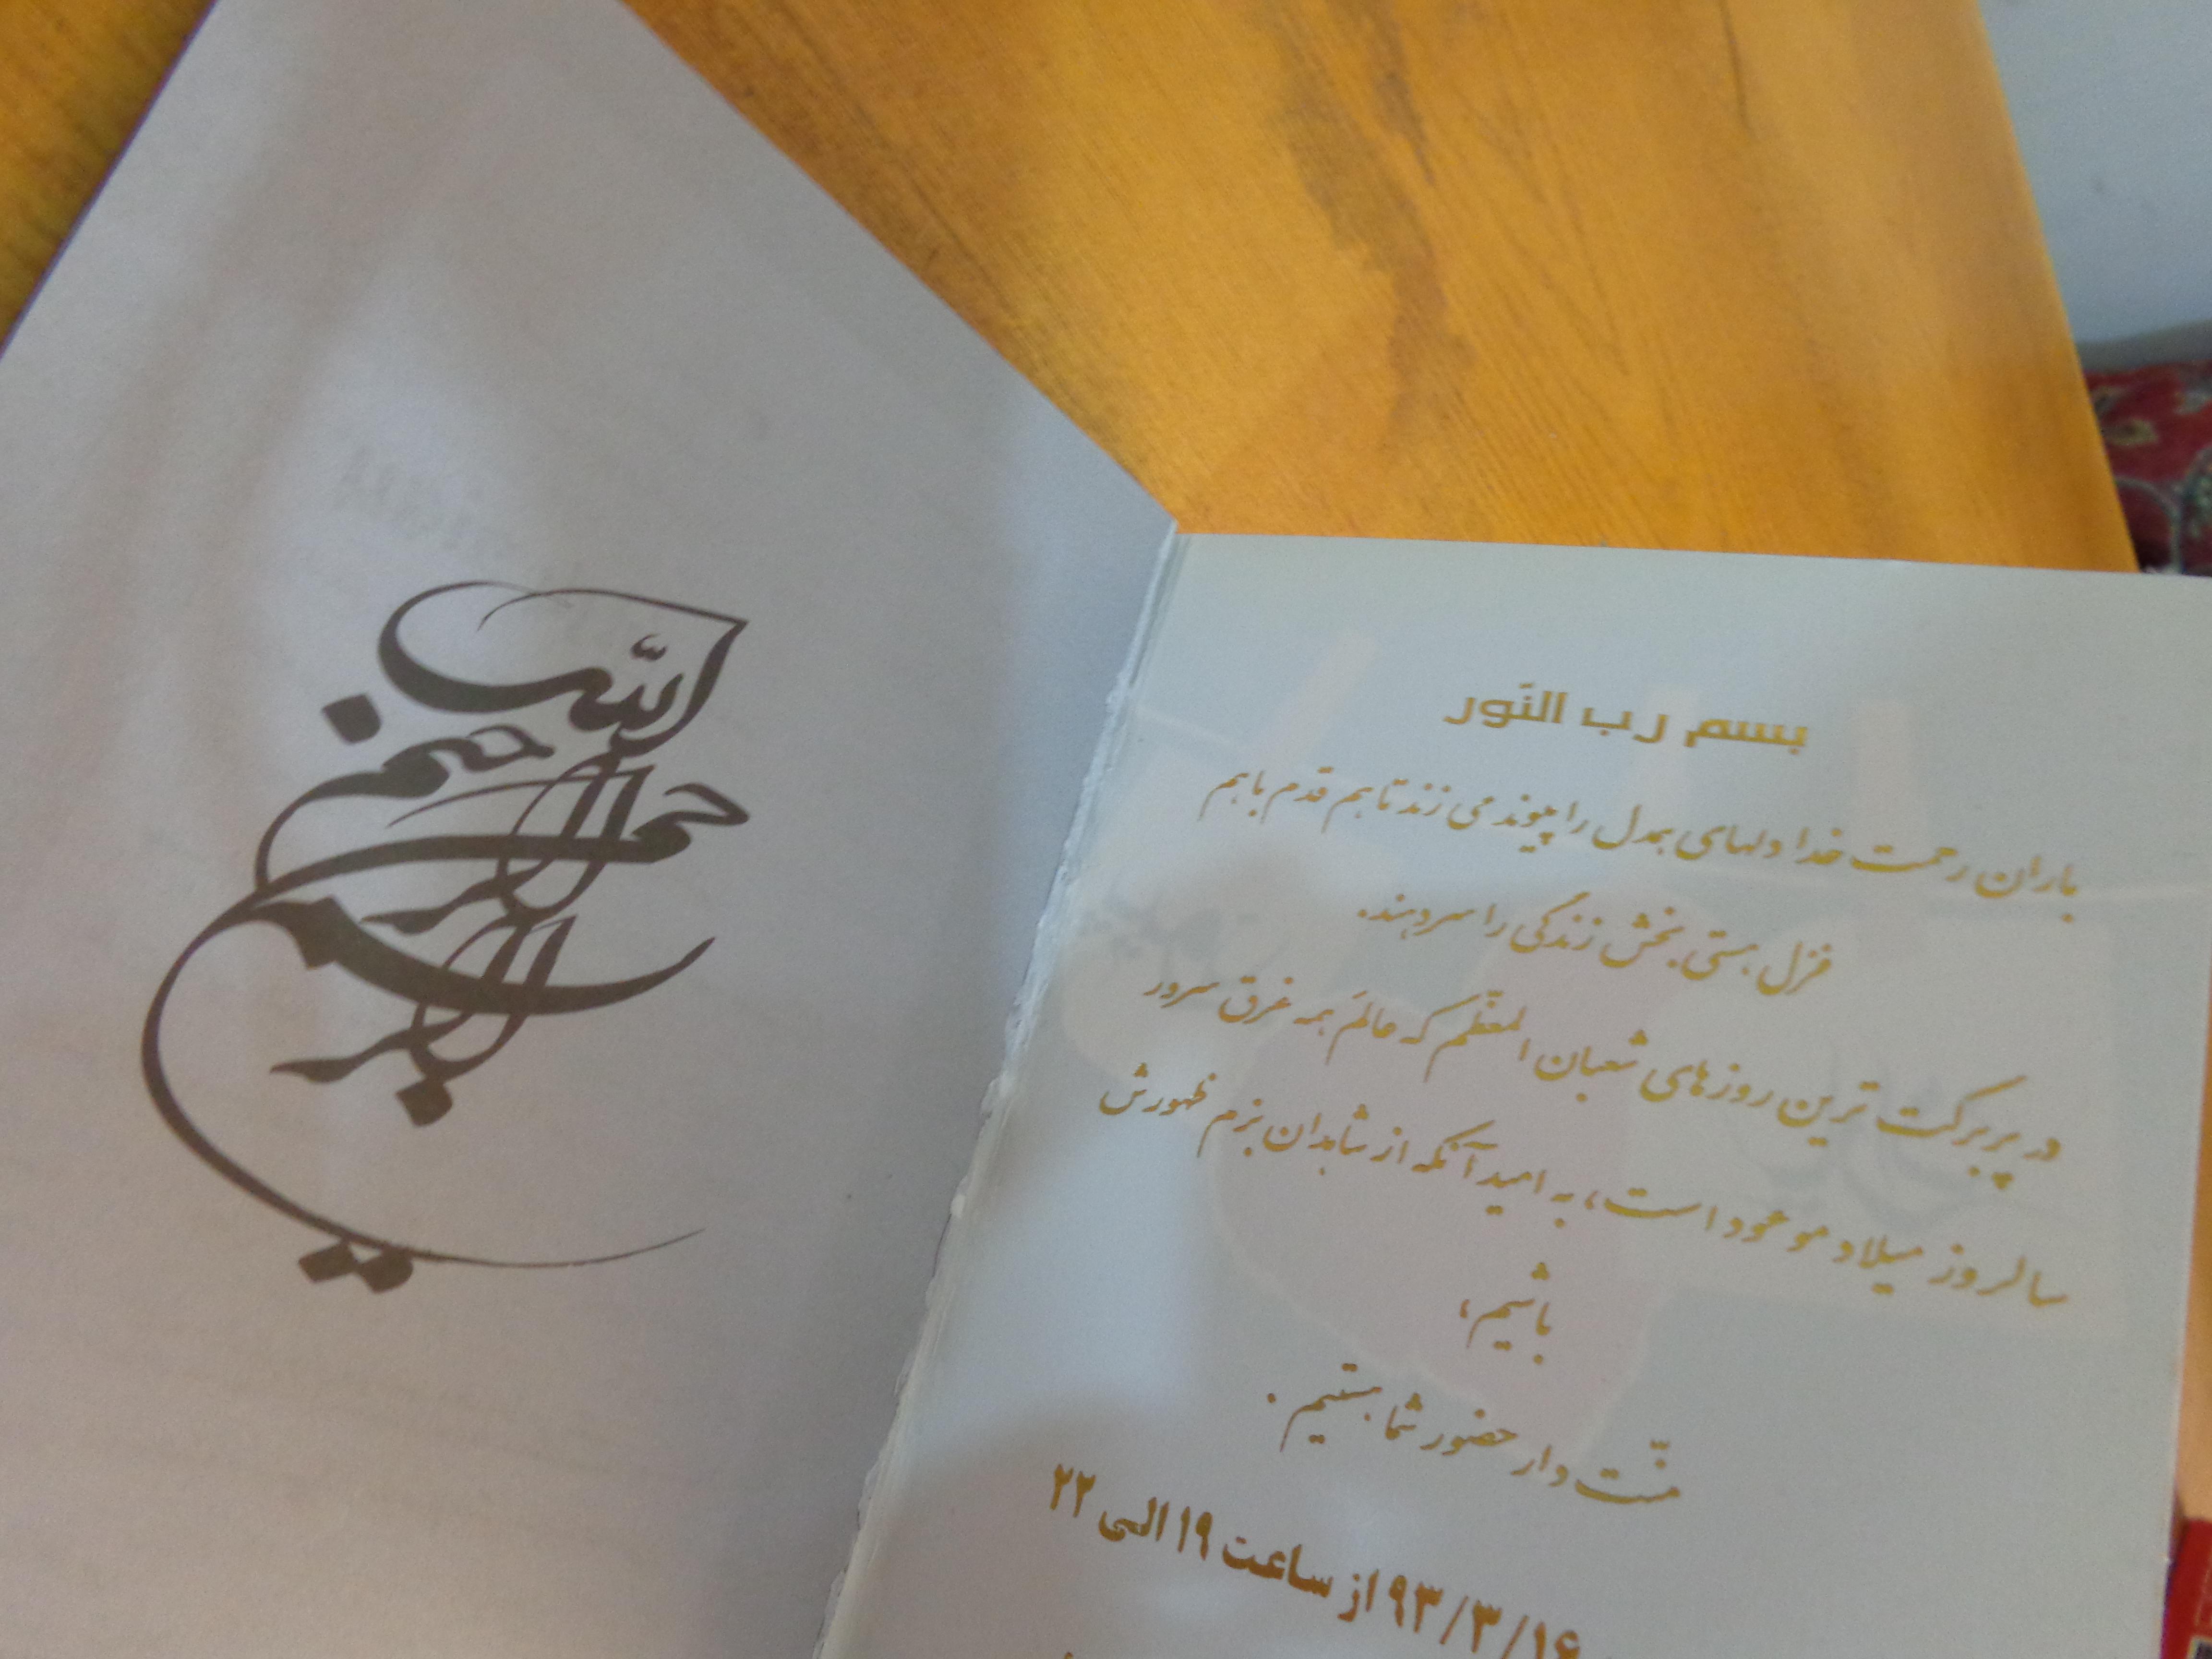 بسم الله الرحمن الرحیم
بسم رب النّور
باران رحمت خدا دلهای همدل را پیوند می زند تا هم قدم با هم
غزل هستی بخش زندگی را سر دهند.
در پر برکت ترین روزهای شعبان المعظّم که عالَم همه غرق سرور
سالروز میلاد موعود است، به امید آنکه از شاهدان بزم ظهورش
باشیم،
منّت دار حضور شما هستیم .
۹۳/۳/۱۶ از ساعت ۱۹ الی ۲۲